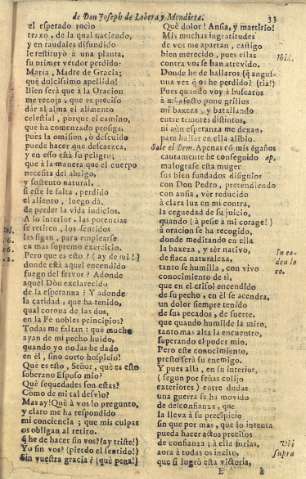 de Don Joseph de Lobera y Mendieta. 33
el esperado rocio
terso, de la qual naciendo,
y en raudales difundido
le restituyò à una planta,
su primer verdor perdido:
Maria, Madre de Gracia;
què dulcissimo apellido!
Bien serà que à la Oracion
me recoja, que es preciso
dàr al alma el alimento
celestial, porque el camino,
que ha comenzado prosiga,
pues la omission, ò descuido
puede hacer que descaezca,
y en esso està su peligro;
que à la manera, que el cuerpo
necessita del abrigo,
y sustento natural,
si este le falta, perdido
el aliento, luego dà,
de perder la vida indicios.
A lo interior, las potencias
se retiren, los sentidos
las sigan, para emplearse
en mas supremo exercicio.
Pero què es esto? (ay de mì!)
donde està aquel encendido
fuego del fervor? Adonde
aquel Don esclarecido
de la esperanza? Y adonde
la caridad, que ha tenido,
qual corona de las dos,
en la Fè nobles principios?
Todas me faltan: què mucho
ayan de mi pecho huido,
quando yo no las he dado
en èl, sino corto hospicio!
Què es esto, Señor, què es esto
soberano Esposo mio?
Què sequedades son estas?
Como de mì tal desvìo?
Mas ay! Què à vos lo pregunto,
y claro me ha respondido
mi conciencia; que mis culpas
os obligan al retiro.
Què he de hacer sin vos? (ay triste!)
Yo sin vos? (pierdo el sentido!)
Sin vuestra gracia? (què pena!)
Què dolor! Ansia, y martyrio!
Mis muchas ingratitudes
de vos me apartan, castigo
bien merecido, pues ellas
contra vos se han atrevido.
Donde he de hallaros (què angustia
otra vez si os he perdido? (tia!)
Pues quanto voy à buscaros
à mi afecto pone grillos
mi baxeza, y batallando
entre temores distintos,
ni aun esperanza me dexan,
para hallar en ella alivio.
Sale el Dem. Apenas cò mis egaños
cautamente he conseguido ap.
malograr esta muger
sus bien fundados designios
con Don Pedro, pretendiendo
con ansia, ver reducido
à clara luz en mi contra,
la ceguedad de su juicio,
quando (à pesar de mi corage!)
à oracion se ha recogido,
donde meditando en ella
la baxeza, y ser nativo,
de flaca naturaleza,
tanto se humilla, con vivo
conocimiento de sì,
que en el crisol encendido
de su pecho, en èl se acendra,
un dolor siempre tenido
de sus pecados, de suerte,
que quando humilde la miro,
tanto mas alta la encuentro,
superando el poder mio.
Pero este conocimiento,
presto serà su enemigo.
Y pues allà, en su interior,
(segun por señas colijo
exteriores) entre dudas
una guerra se ha movido
de desconfianza, que
la lleva à su precipicio
sin que por mas, que lo intenta
pueda hacer actos precisos
de confianza; à ella furias,
aora à todas os incito,
que si logro esta victoria,
E
Vbi
supra